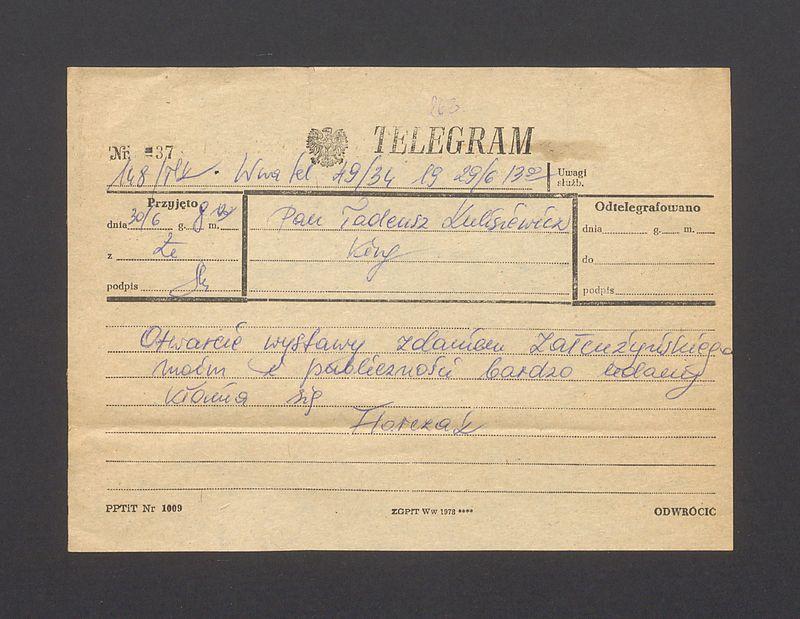 863
TELEGRAM
Nr. 37
148/Tlk. Wwa tel 49/34 19 29/6 13 00
Uwagi służb.
Przyjęto
dnia 30/6 g. 8 m.
z Że
podpis
Pan Tadeusz Kulisiewicz
King
Odtelegrafowano
dnia g. m.
do
podpis
Otwarcie wystawy zdaniem Załęczyńskiego
moim i publiczności bardzo udany
kłania się
Florczak
PPTiT Nr 1009
ZGPiT Ww 1978 ****
ODWRÓCIĆ